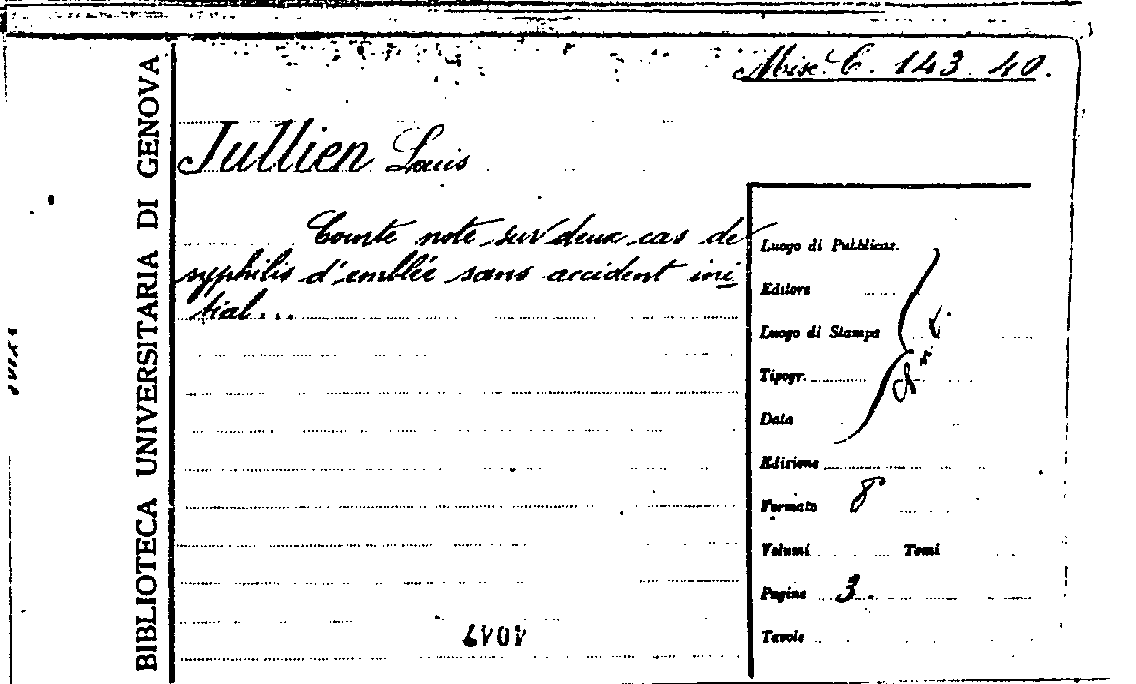 Misc. C. 143. 40.
BIBLIOTECA UNIVERSITARIA DI GENOVA
Jullien Louis
Courte note sur deux cas de
syphilis d'emblée sans accident ini
tial...
Luogo di Pubblicaz.
Editore
Luogo di Stampa
Tipogr.
Data
Edizione
Formato 8
Volumi Tomi
Pagine 3.
Tavole